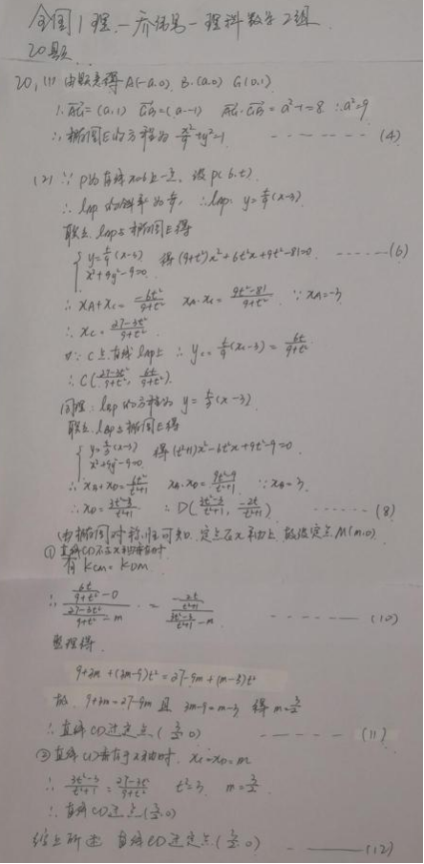 全国1理-乔伟男-理科数学2组
20题
20, (1) 由题意得 A(-a,0), B(a,0) G(0,1)
∴ AG = (a,1) GB = (a,-1) AG·GB = a²-1=8 ∴ a²=9
∴ 椭圆E的方程为 x²/9+y²=1 ------- (4)
(2) ∵ P为直线x=6上一点, 设P(6,t)
∴ lAP 的斜率为 t/9, ∴ lAP: y=t/9(x+3)
联立 lAP与椭圆E得
{ y=t/9(x+3)
x²+9y²-9=0 得(9+t²)x²+6t²x+9t²-81=0 ----- (6)
∴ xA+xC=-6t²/9+t² xA·xC=9t²-81/9+t² ∵ xA=-3
∴ xC=27-3t²/9+t²
又∵ C在直线lAP上 ∴ yC=t/9(xC+3)=6t/9+t²
∴ C(27-3t²/9+t², 6t/9+t²)
同理: lBP的方程为 y=t/3(x-3)
联立 lBP与椭圆E得
{ y=t/3(x-3)
x²+9y²-9=0 得(t²+1)x²-6t²x+9t²-9=0
∴ xB+xD=6t²/t²+1 xB·xD=9t²-9/t²+1 ∵ xB=3
∴ xD=3t²-3/t²+1 ∴ D(3t²-3/t²+1, -2t/t²+1) ----- (8)
由椭圆对称性可知, 定点在x轴上, 故设定点M(m,0)
① 直线CD不与x轴垂直时
有 kCM=kDM
∴ 6t/9+t² -0 / 27-3t²/9+t² -m = -2t/t²+1 / 3t²-3/t²+1 -m ------ (10)
整理得
9+3m+(3m-9)t²=27-9m+(m-3)t²
故 9+3m=27-9m 且 3m-9=m-3 得 m=3/2
∴ 直线CD过定点(3/2,0) ----- (11)
② 直线CD垂直于x轴时, xC=xD=m
∴ 3t²-3/t²+1=27-3t²/9+t² t²=3 m=3/2
∴ 直线CD过点(3/2,0)
综上所述 直线CD过定点(3/2,0) - —— (12)